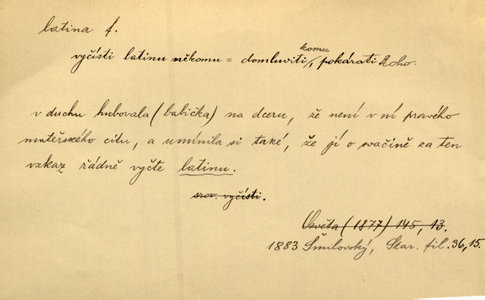 latina f.
vyčísti latinu někomu = domluviti komu, pokárati koho.
v duchu hubovala (babička) na dceru, že není v ní pravého
mateřského citu, a umínila si také, že jí o svačině za ten
vzkaz řádně vyčte latinu.
srov. vyčísti.
Osvěta (1877) 145, 13.
1883 Šmilovský, Star. fil. 36, 15.